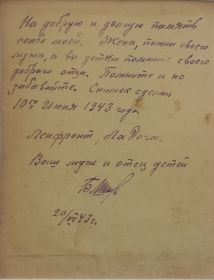 На добрую и долгую память
семье моей. Жена, помни своего
мужа, а вы детки помните своего
доброго отца. Помните и не
забывайте. Снимок сделан
10го Июня 1943 года
Ленфронт, Ладога.
Ваш муж и отец детей
20/VI 43 г.